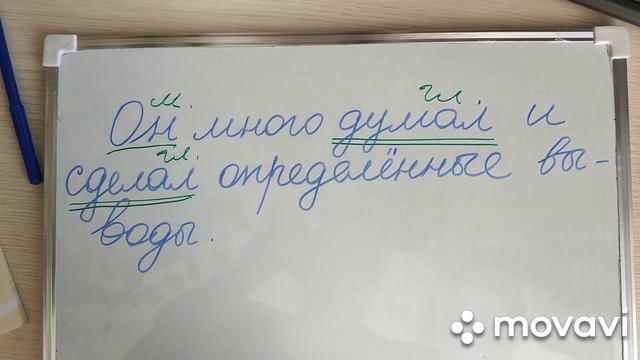 м. гл.
Он много думал и
гл.
сделал определённые вы-
воды.
movavi